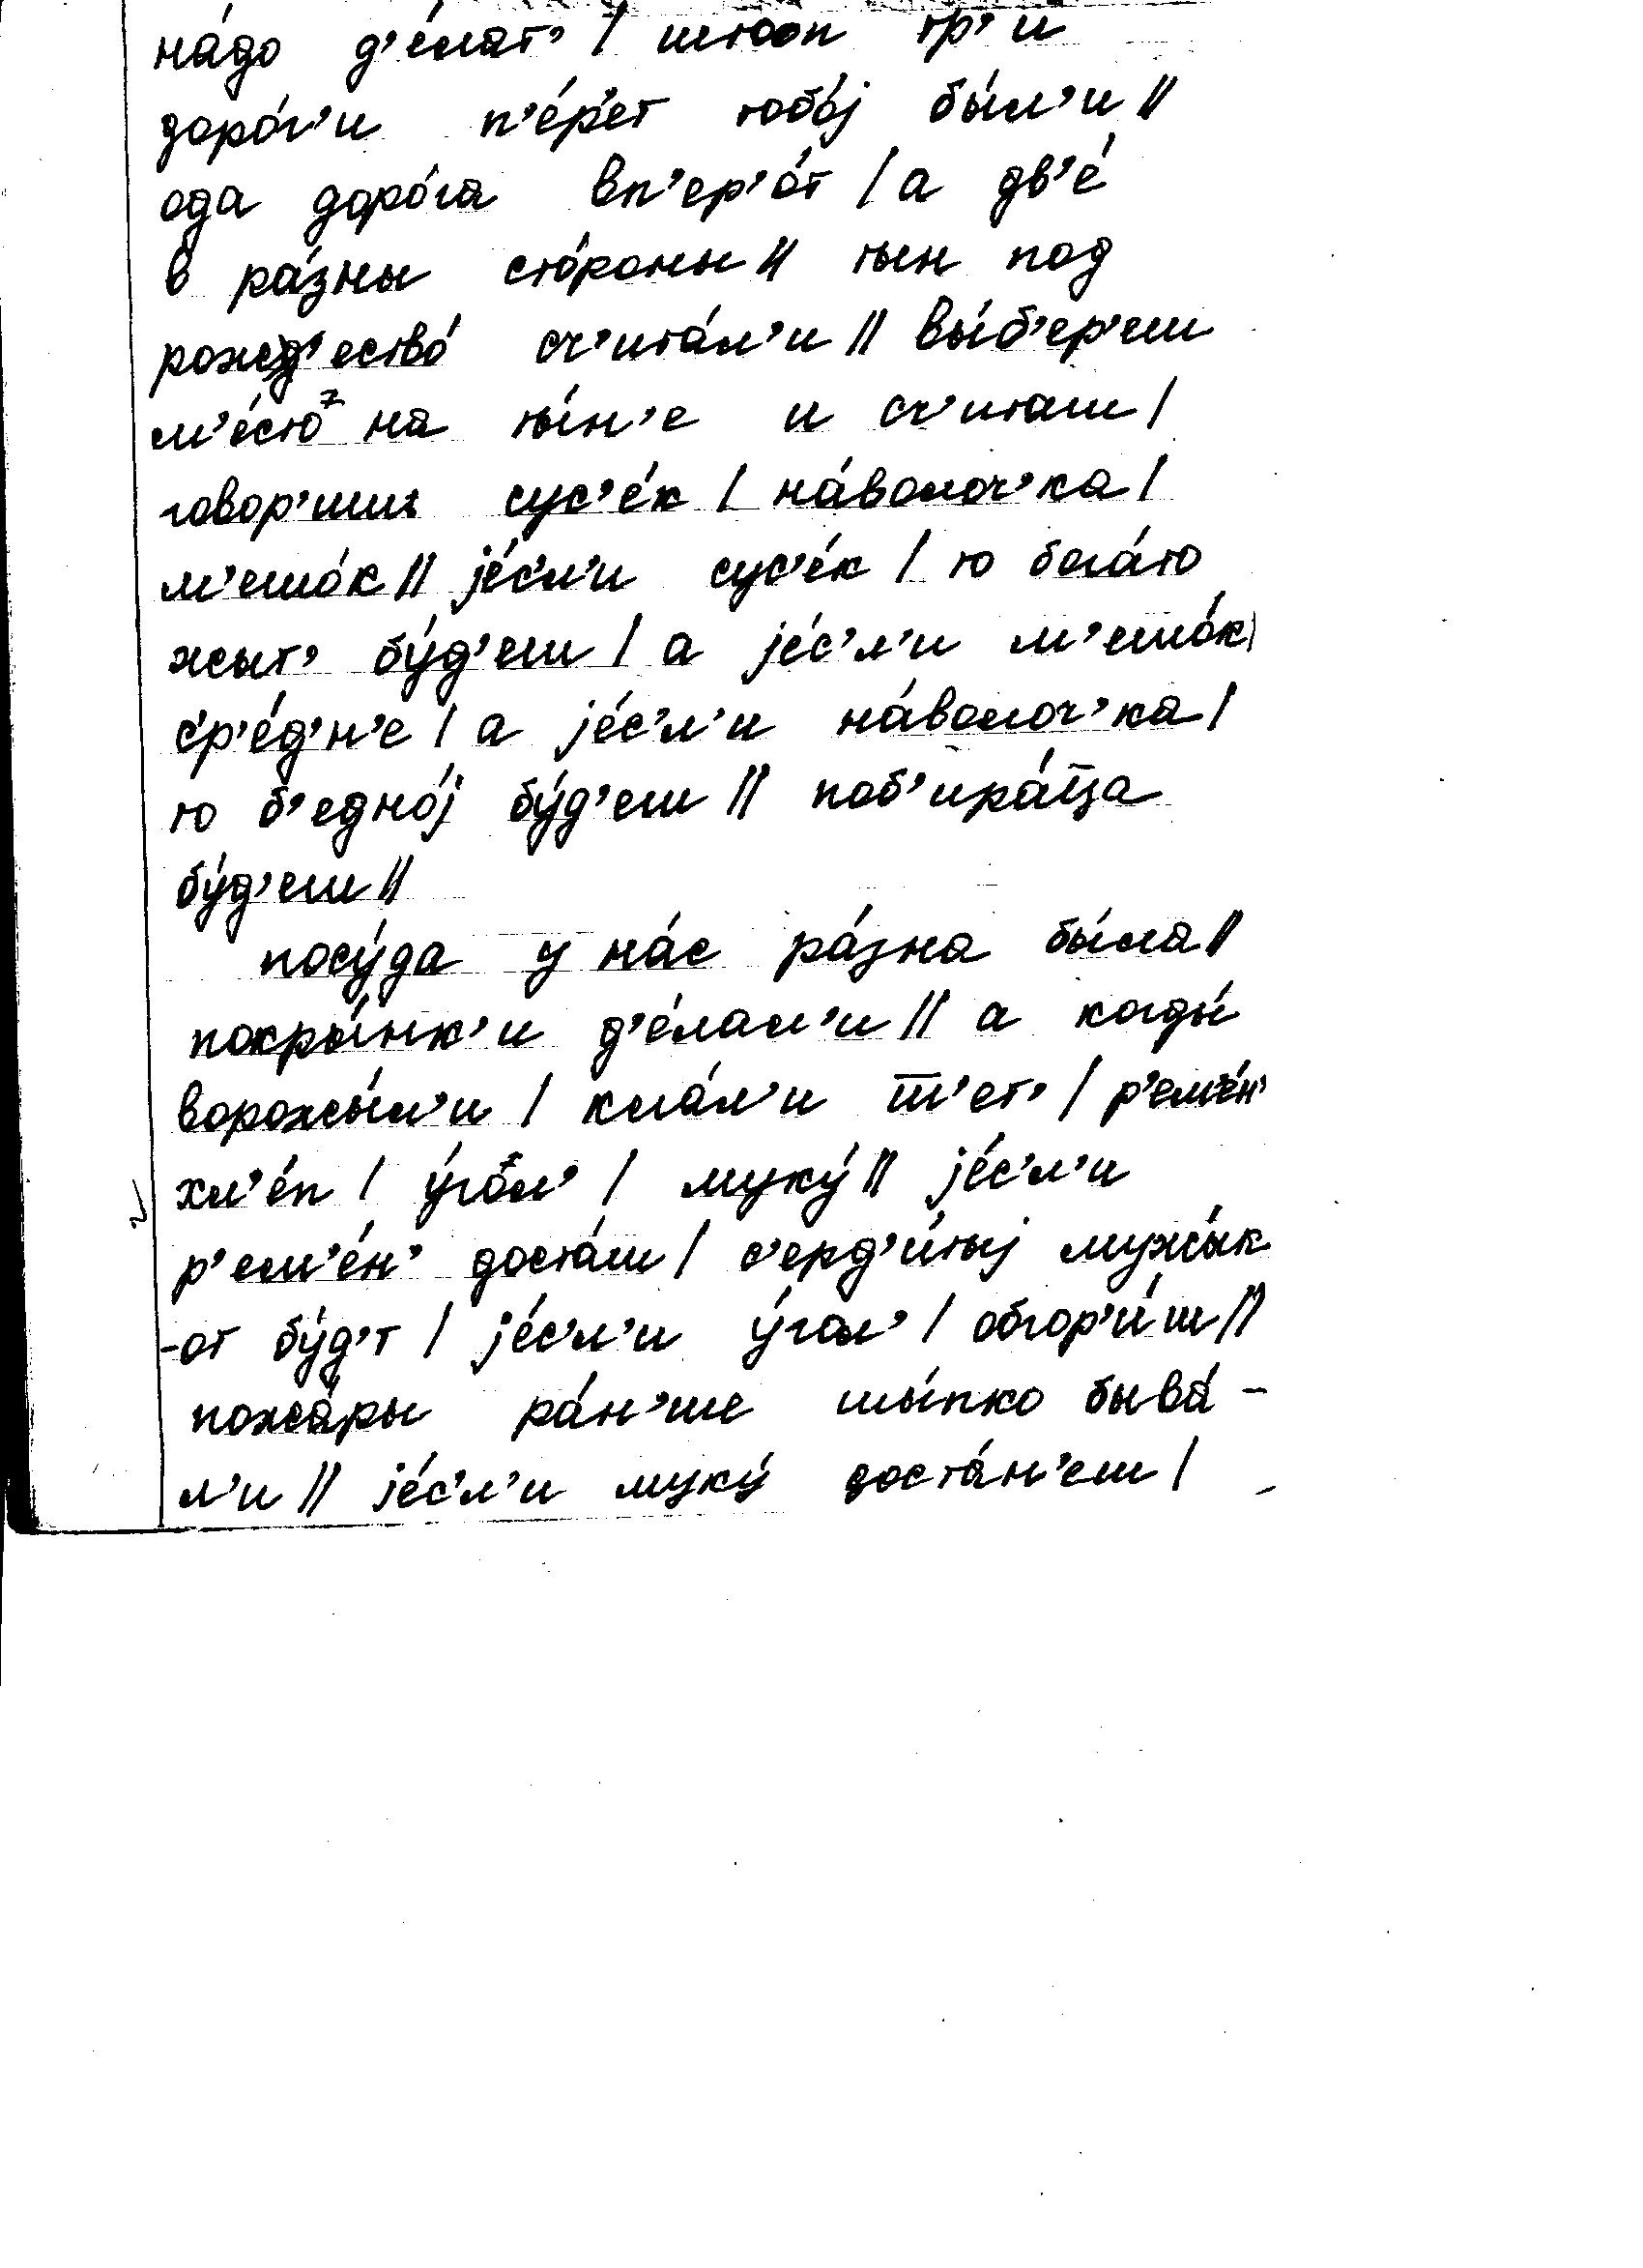 на́до д'е́лат' / штооп тр'и
доро́г'и п'е́р'ет тобо́j бы́л'и //
ода доро́га вп'ер'о́т / а дв'е́
в ра́зны сто́роны // тын под
рожд'ество́ сч'ита́л'и // вы́б'ер'еш
м'е́сто на ты́н'е и сч'иташ /
говор'иш: сус'е́к / на́волоч'ка /
м'ешо́к // jе́с'л'и сус'е́к / то бога́то
жыт' бу́д'еш / а jе́с'л'и м'ешо́к /
с'р'е́д'н'е / а jе́с'л'и на́волоч'ка /
то б'едно́j бу́д'еш // поб'ира́ц̅а
бу́д'еш //
посу́да у на́с ра́зна бы́ла //
покры́нк'и д'е́лал'и // а когды́
ворожы́л'и / кла́л'и ш̅'ет' / р'ем'е́н'
хл'е́п / у́гол' / муку́ // jе́с'л'и
р'ем'е́н' доста́ш / с'ерд'и́тыj мужы́к
-от бу́д'т / jе́с'л'и у́гол' / обгор'и́ш //
пожа́ры ра́н'ше шы́пко быва́-
л'и // jе́с'л'и муку́ доста́н'еш /